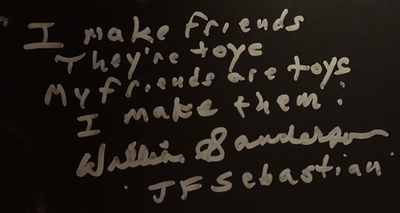 I make friends
They're toys
My friends are toys
I make them.
William Sanderson
JF Sebastian